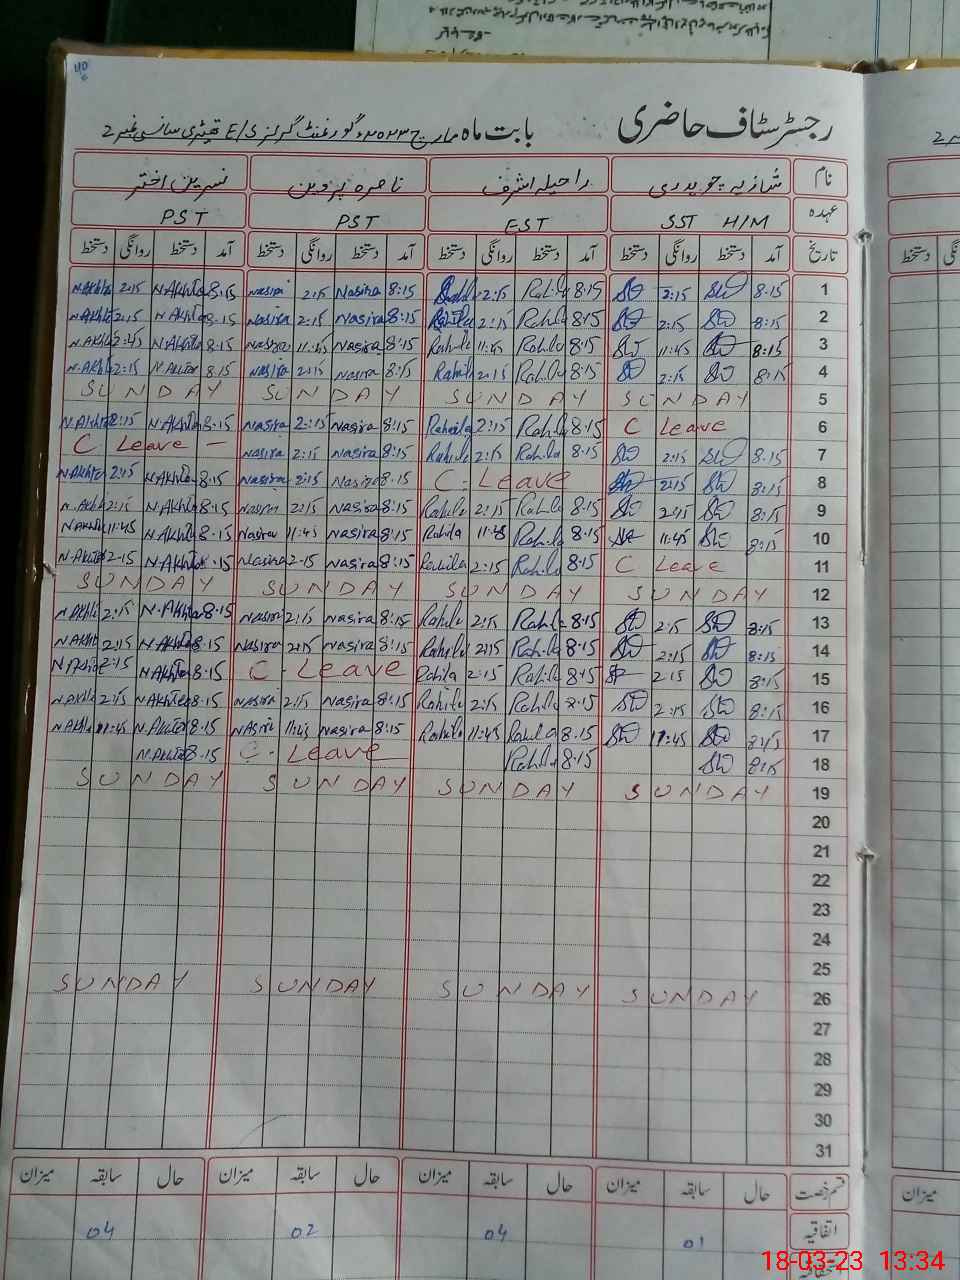 رجسٹر سٹاف حاضری بابت ماہ مارچ ۲۰۲۳ء گورنمنٹ گرلز E/S
نام شازیہ چوہدری راحیلہ اشرف ناصرہ پروین نسرین اختر
عہدہ SST H/M EST PST PST
تاریخ آمد دستخط روانگی دستخط آمد دستخط روانگی دستخط آمد دستخط روانگی دستخط آمد دستخط روانگی دستخط
N.Akhtar 2:15 N.Akhtar 8:15 Nasira 2:15 Nasira 8:15 2:15 Rahila 8:15 2:15 8:15 1
N.Akhtar 2:15 N.Akhtar 8:15 Nasira 2:15 Nasira 8:15 Rahila 2:15 Rahila 8:15 2:15 8:15 2
N.Akhtar 2:45 N.Akhtar 8:15 Nasira 11:45 Nasira 8:15 Rahila 11:45 Rahila 8:15 11:45 8:15 3
N.Akhtar 2:15 N.Akhtar 8:15 Nasira 2:15 Nasira 8:15 Rahila 2:15 Rahila 8:15 2:15 8:15 4
SUNDAY SUNDAY SUNDAY SUNDAY 5
N.Akhtar 2:15 N.Akhtar 8:15 Nasira 2:15 Nasira 8:15 Raheila 2:15 Rahila 8:15 C Leave 6
C Leave – Nasira 2:15 Nasira 8:15 Rahila 2:15 Rahila 8:15 2:15 8:15 7
N.Akhtar 2:15 N.Akhtar 8:15 Nasira 2:15 Nasira 8:15 C - Leave 2:15 8:15 8
N.Akhtar 2:15 N.Akhtar 8:15 Nasira 2:15 Nasira 8:15 Rahila 2:15 Rahila 8:15 2:15 8:15 9
N.Akhtar 11:45 N.Akhtar 8:15 Nasira 11:45 Nasira 8:15 Rahila 11:45 Rahila 8:15 11:45 8:15 10
N.Akhtar 2:15 N.Akhtar 8:15 Nasira 2:15 Nasira 8:15 Rahila 2:15 Rahila 8:15 C Leave 11
SUNDAY SUNDAY SUNDAY SUNDAY 12
N.Akhtar 2:15 N.Akhtar 8:15 Nasira 2:15 Nasira 8:15 Rahila 2:15 Rahila 8:15 2:15 8:15 13
N.Akhtar 2:15 N.Akhtar 8:15 Nasira 2:15 Nasira 8:15 Rahila 2:15 Rahila 8:15 2:15 8:15 14
N.Akhtar 2:15 N.Akhtar 8:15 C - Leave Rahila 2:15 Rahila 8:15 2:15 8:15 15
N.Akhtar 2:15 N.Akhter 8:15 Nasira 2:15 Nasira 8:15 Rahila 2:15 Rahila 8:15 2:15 8:15 16
N.Akhtar 11:45 N.Akhter 8:15 Nasira 11:45 Nasira 8:15 Rahila 11:45 Rahila 8:15 11:45 8:15 17
N.Akhter 8:15 C - Leave Rahila 8:15 8:15 18
SUNDAY SUNDAY SUNDAY SUNDAY 19
20
21
22
23
24
25
SUNDAY SUNDAY SUNDAY SUNDAY 26
27
28
29
30
31
قسم رخصت حال سابقہ میزان حال سابقہ میزان حال سابقہ میزان حال سابقہ میزان
اتفاقیہ 01 04 02 04
میزان
18-03-23 13:34